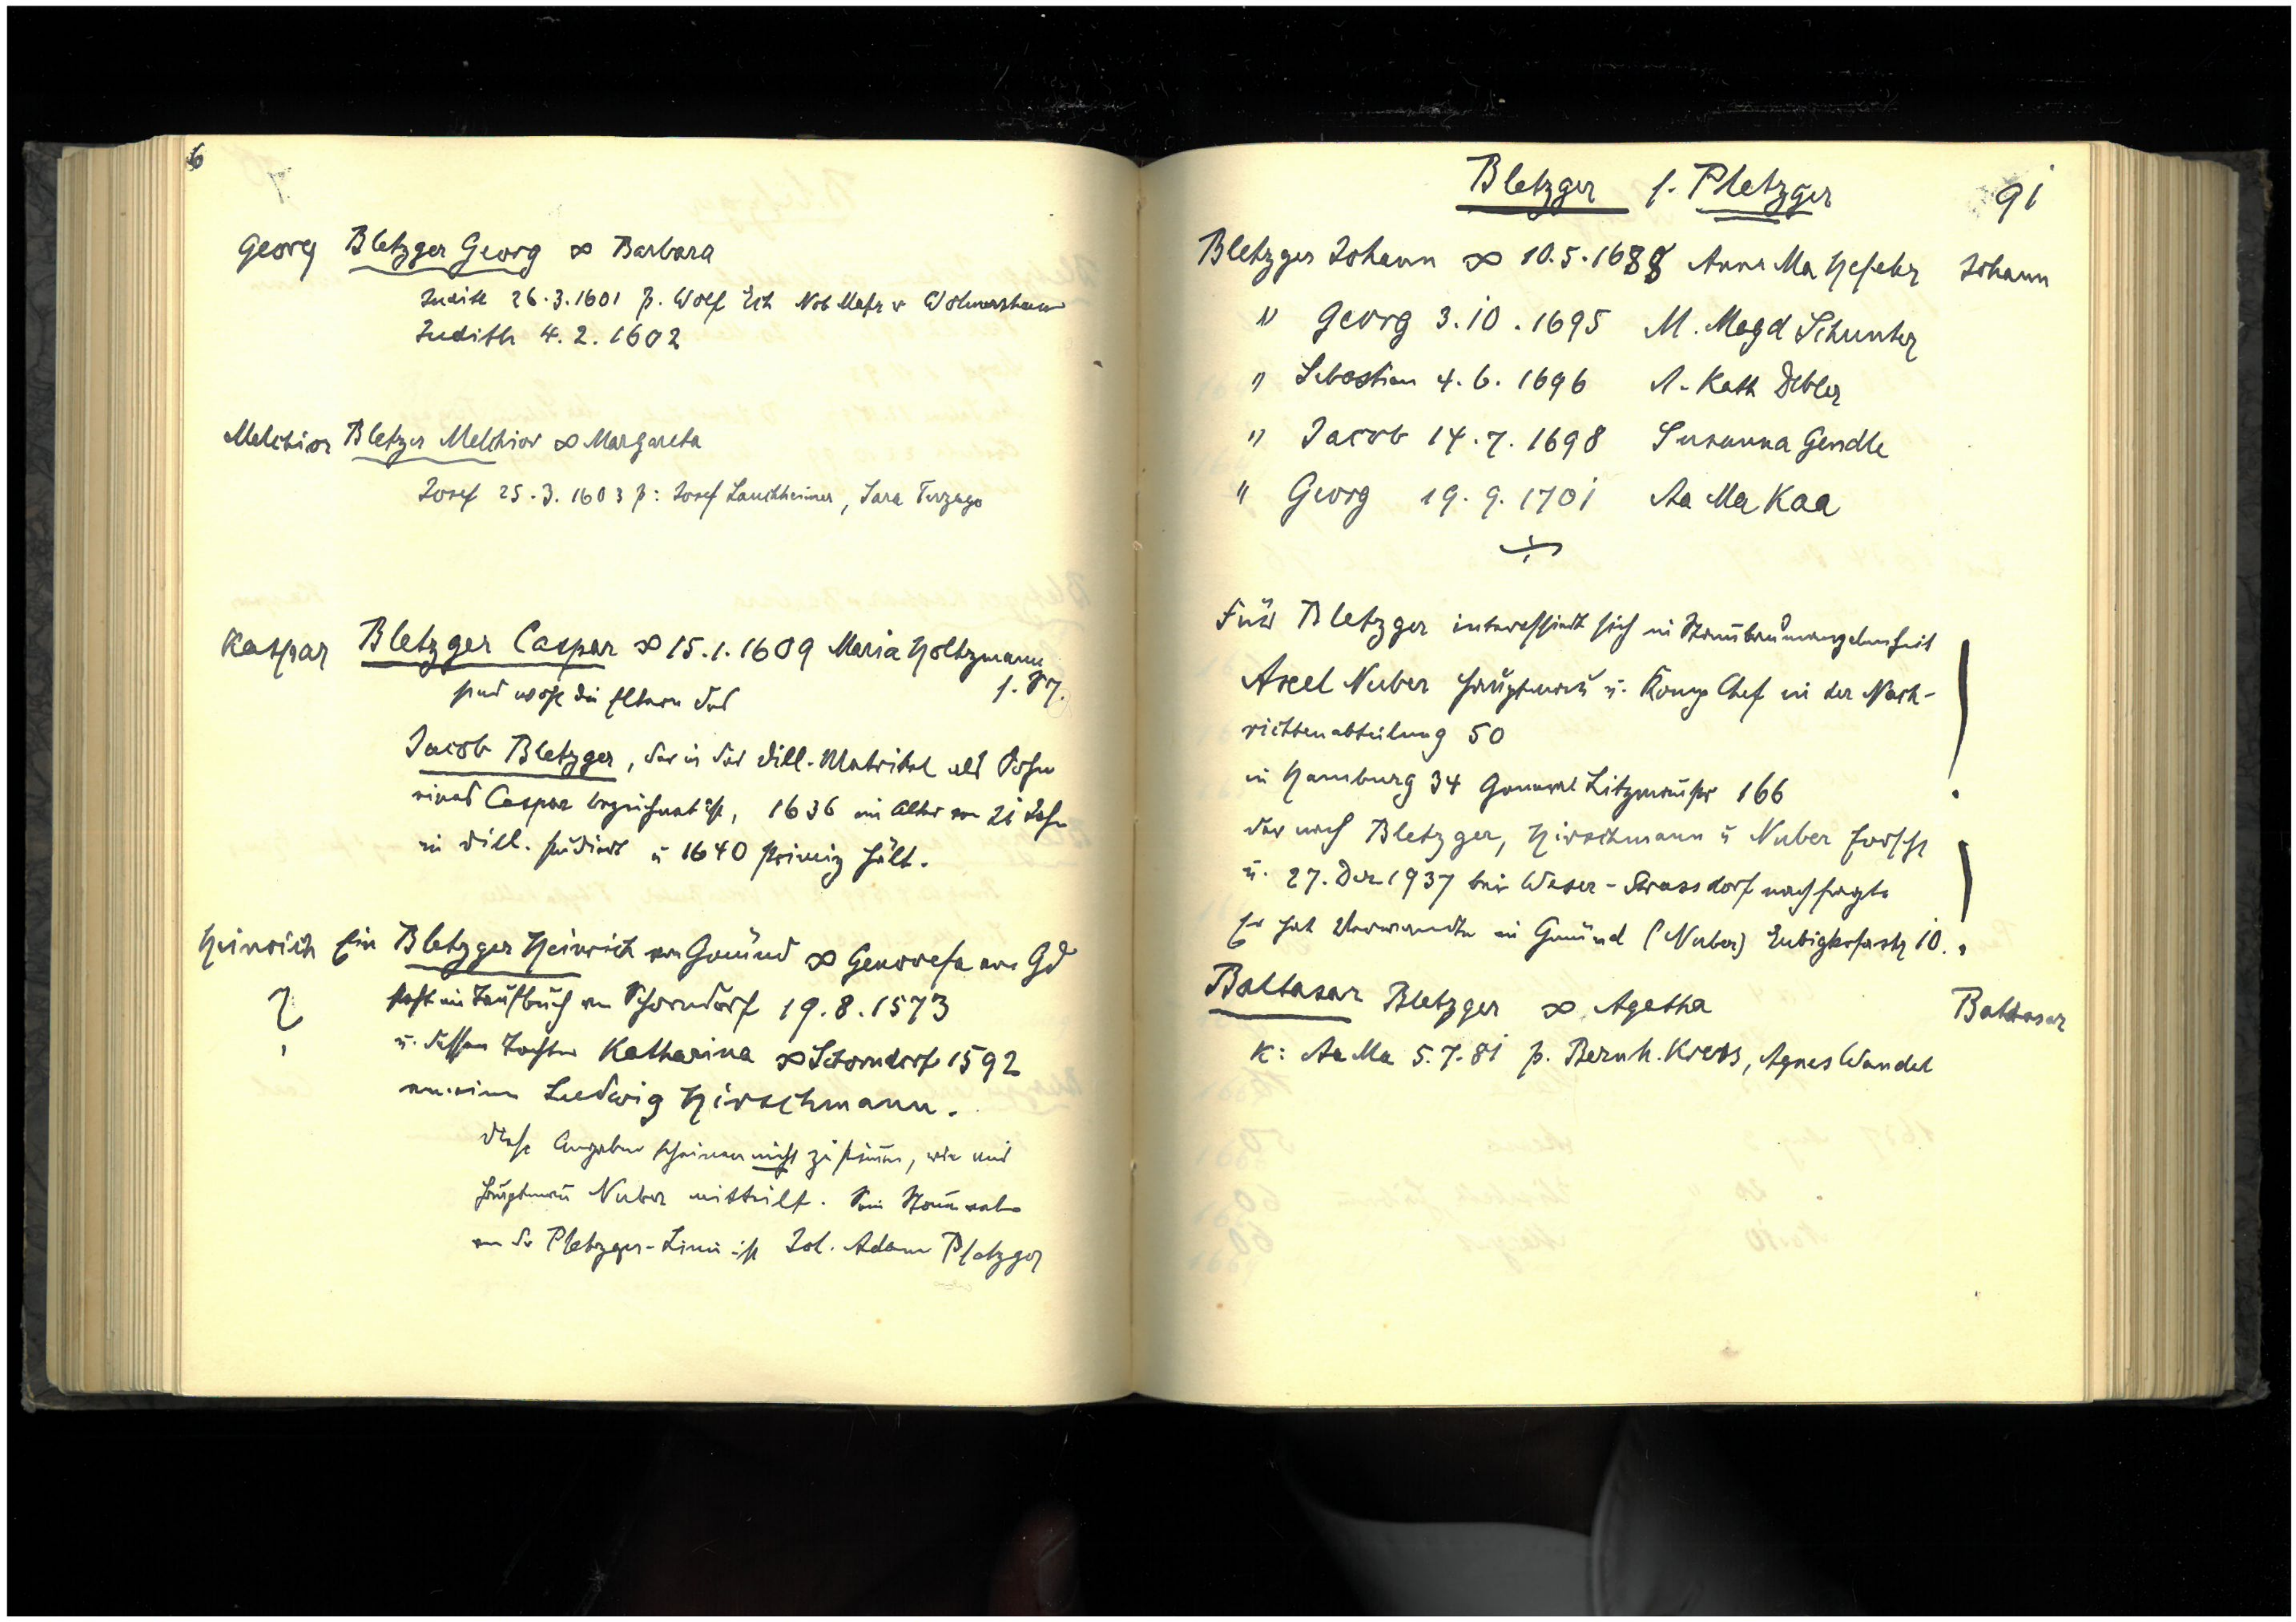 6
Georg Bletzger Georg ∞ Barbara
Judith 26.3.1601 p. Wolf
Judith 4.2.1602
Melchior Bletzger Melchior ∞ Margareta
Josef 25.3.1603 p: Josef Lauchheimer, Sara Terzago
Kaspar Bletzger Caspar ∞ 15.1.1609 Maria Holtzmann
sind wohl die Eltern des
Jacob Bletzger, der in der Dill. Matrikel als Sohn
eines Caspar bezeichnet ist, 1636 im Alter von 21 Jahr
in Dill. studiert u 1640 Primiz hält.
Heinrich Ein Bletzger Heinrich von Gmünd ∞ Genovefa von Gd
?
steht im Taufbuch von Schorndorf 19.8.1573
u. dessen Tochter Katharina ∞ Schorndorf 1592
einen Ludwig Hirschmann.
Diese Angaben scheinen nicht zu stimmen, wie mir
Hauptmann Nuber mitteilt. Sein Stammvater
von der Pletzger-Linie ist Joh. Adam Pletzger
Bletzger s. Pletzger 91
Bletzger Johann ∞ 10.5.1688 Anna Ma Johann
" Georg 3.10.1695 M. Magd Schunter
" Sebastian 4.6.1696 A. Kath Debler
" Jacob 14.7.1698 Susanna Gendle
" Georg 19.9.1701 Aa Ma Kaa
Für Bletzger interessiert sich in Stammbaumangelegenheit
Axel Nuber Hauptmann u. Komp Chef in der Nach-
richtenabteilung 50
in Hamburg 34 General Litzmannstr 166
der nach Bletzger, Hirschmann u Nuber forscht
u. 27. Dez 1937 bei Weser-Strassdorf nachfragte
Er hat Verwandte in Gmünd (Nuber) 10.
Baltasar Bletzger ∞ Agatha Baltasar
K: Aa Ma 5.7.81 p. Bernh. Krebs, Agnes Wandel